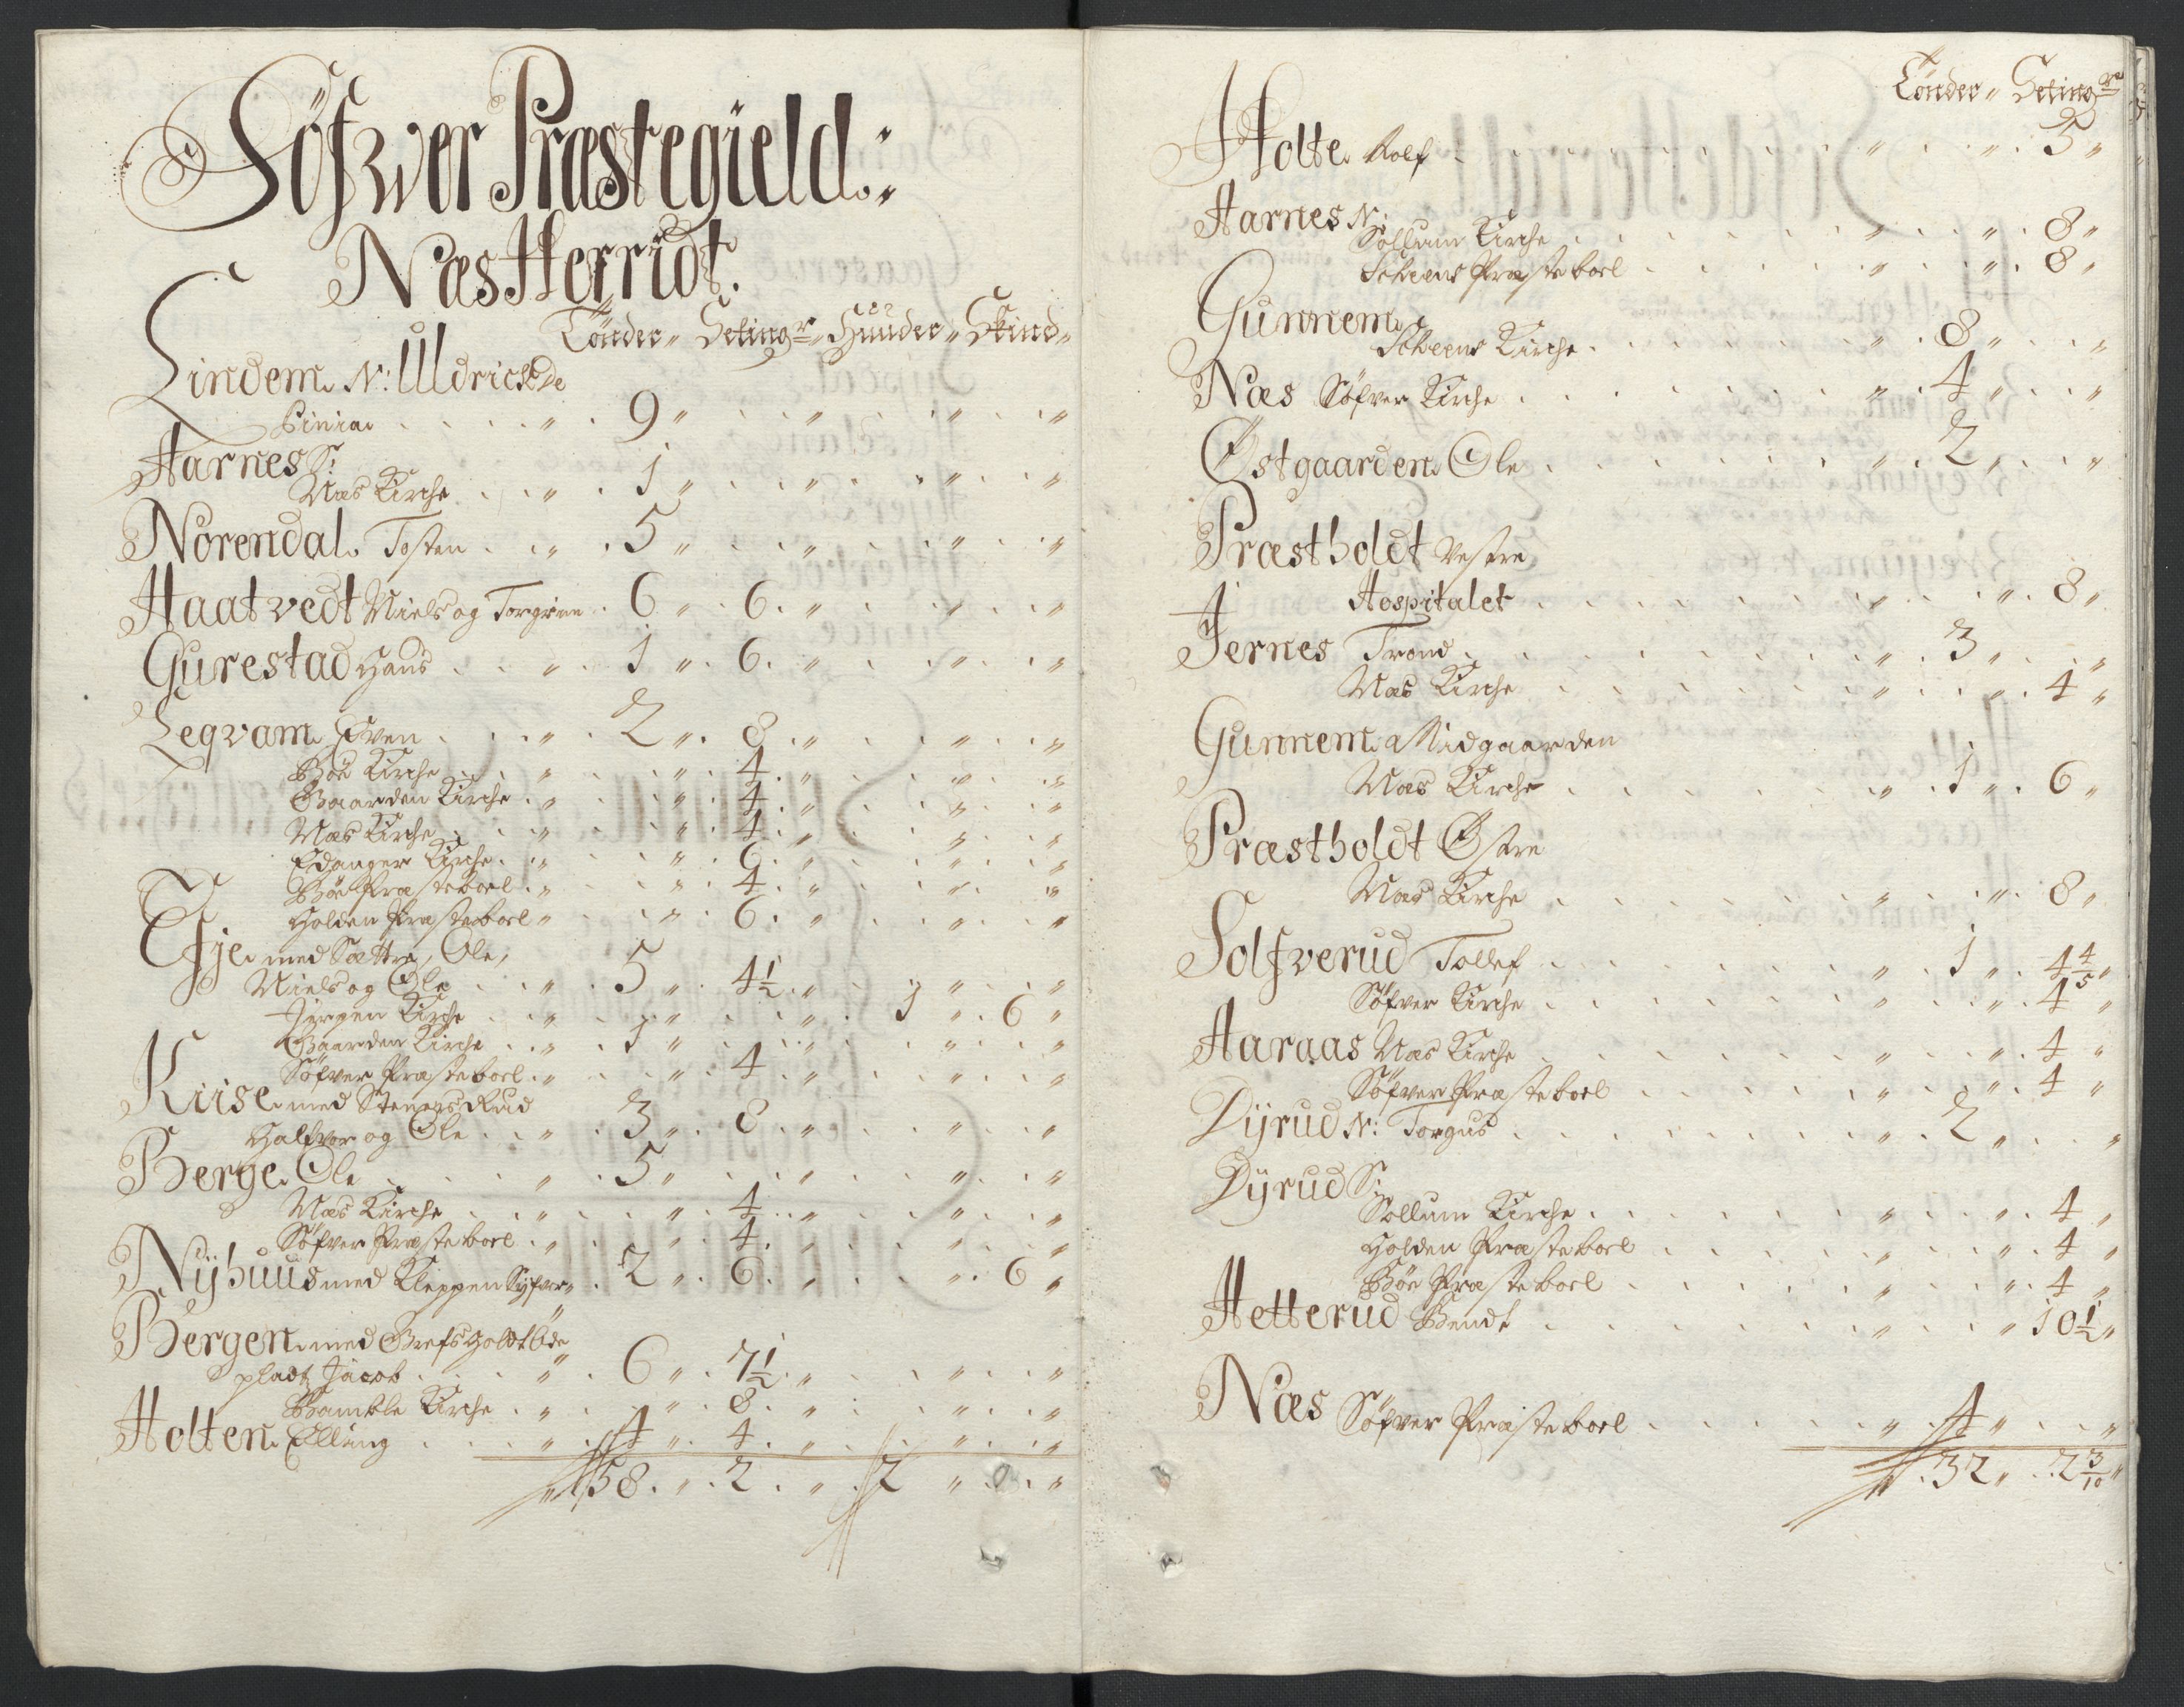 Söfwer Præstegield.
Næs Herridt.
Tönder Setingr Huuder Skind
Lindem N: Uldrich De
Pinia 9
Aarnes S:
Næs Kirche 1
Nörendal Tosten 5
Haatvedt Niels og Torgrim 6 6
Gurestad Hans 1 6
Leqvam Even 2 8
Böe Kirche 4
Gaarden Kirche 4
Næs Kirche 4
Edanger Kirche 6
Böe Præsteboel 4
Holden Præsteboel 6
Efje med Sættre, Ole,
Niels og Ole 5 4½
Jyrpen Kirche 1 6
Gaarden Kirche 1
Söfver Præsteboel 4
Kiise med Steners Rud
Halfvor og Ole 3 8
Berge Ole 5
Næs Kirche 4
Söfver Præsteboel 4
Nyhuus med Kleppen Syfver 2 6 6
Bergen med Grefsholdt Öde
pladtz Jacob 6 7½
Bamble Kirche 8
Holten Elling 4 4
58 2 2
Tönder Setingr
Holte Rolf 5
Aarnes N:
Sollum Kirche 8
Scheens Præsteboel 8
Gunnem
Scheens Kirche 8
Næs Söfver Kirche 4
Østgaarden Ole 2
Præstholdt Vestre
Hospitalet 8
Jernes Trond 3
Næs Kirche 4
Gunnem Midgaarden
Næs Kirche 1 6
Præstholdt Østre
Næs Kirche 8
Solfverud Tollef 1 4 4/5
Söfver Kirche 4
Aaraas Næs Kirche 4
Söfver Præsteboel 4
Dÿrud N: Torgus 2
Dÿrud S:
Sollum Kirche 4
Holden Præsteboel 4
Böe Præsteboel 4
Hetterud Bendt 10½
Næs Söfver Præsteboel 4
32 2 3/10